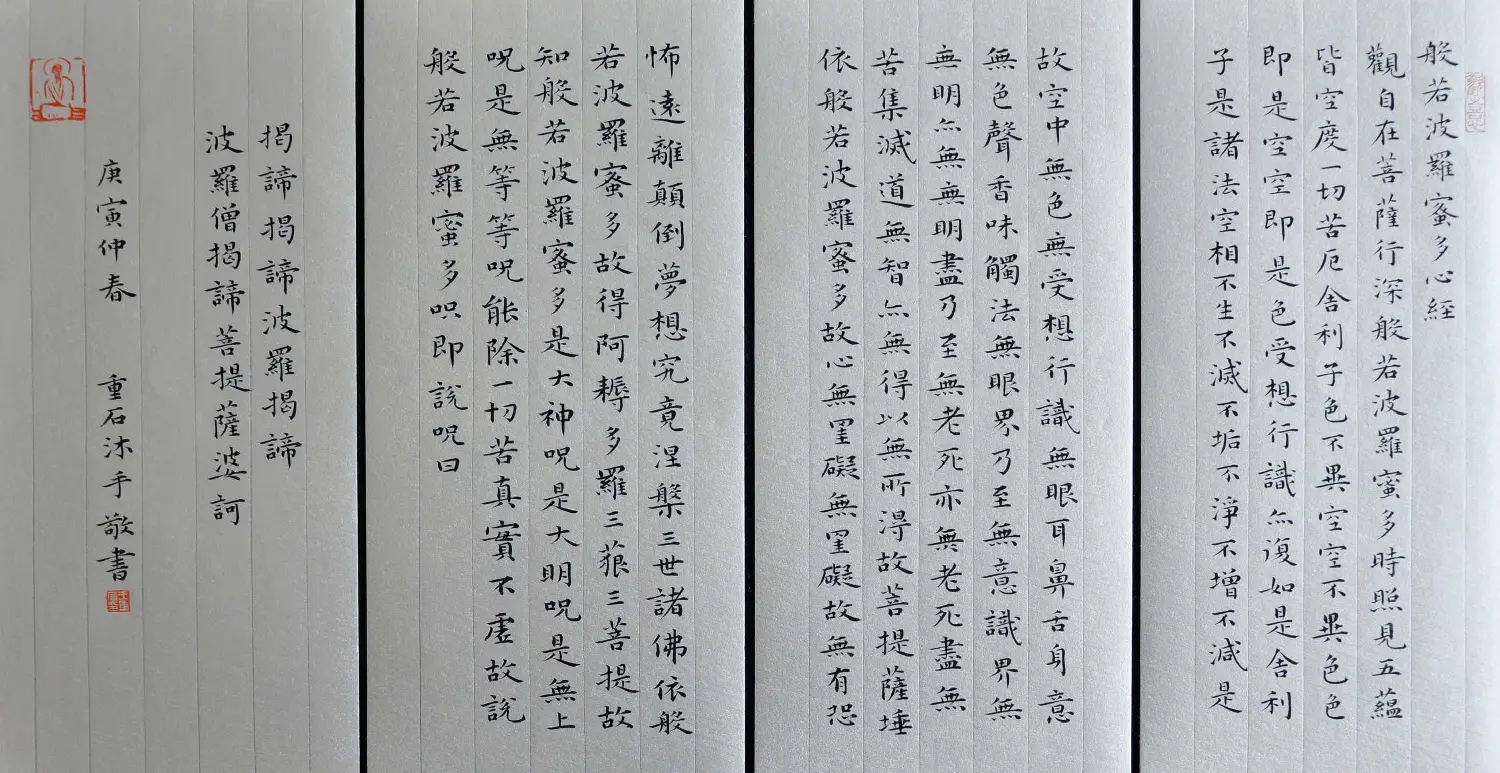 般若波羅蜜多心經
觀自在菩薩行深般若波羅蜜多時照見五蘊
皆空度一切苦厄舍利子色不異空空不異色色
即是空空即是色受想行識亦復如是舍利
子是諸法空相不生不滅不垢不淨不增不減是
故空中無色無受想行識無眼耳鼻舌身意
無色聲香味觸法無眼界乃至無意識界無
無明亦無無明盡乃至無老死亦無老死盡無
苦集滅道無智亦無得以無所得故菩提薩埵
依般若波羅蜜多故心無罣礙無罣礙故無有恐
怖遠離顛倒夢想究竟涅槃三世諸佛依般
若波羅蜜多故得阿耨多羅三藐三菩提故
知般若波羅蜜多是大神呪是大明呪是無上
呪是無等等呪能除一切苦真實不虛故說
般若波羅蜜多呪即說呪曰
揭諦揭諦波羅揭諦
波羅僧揭諦菩提薩婆訶
庚寅仲春 重石沐手敬書